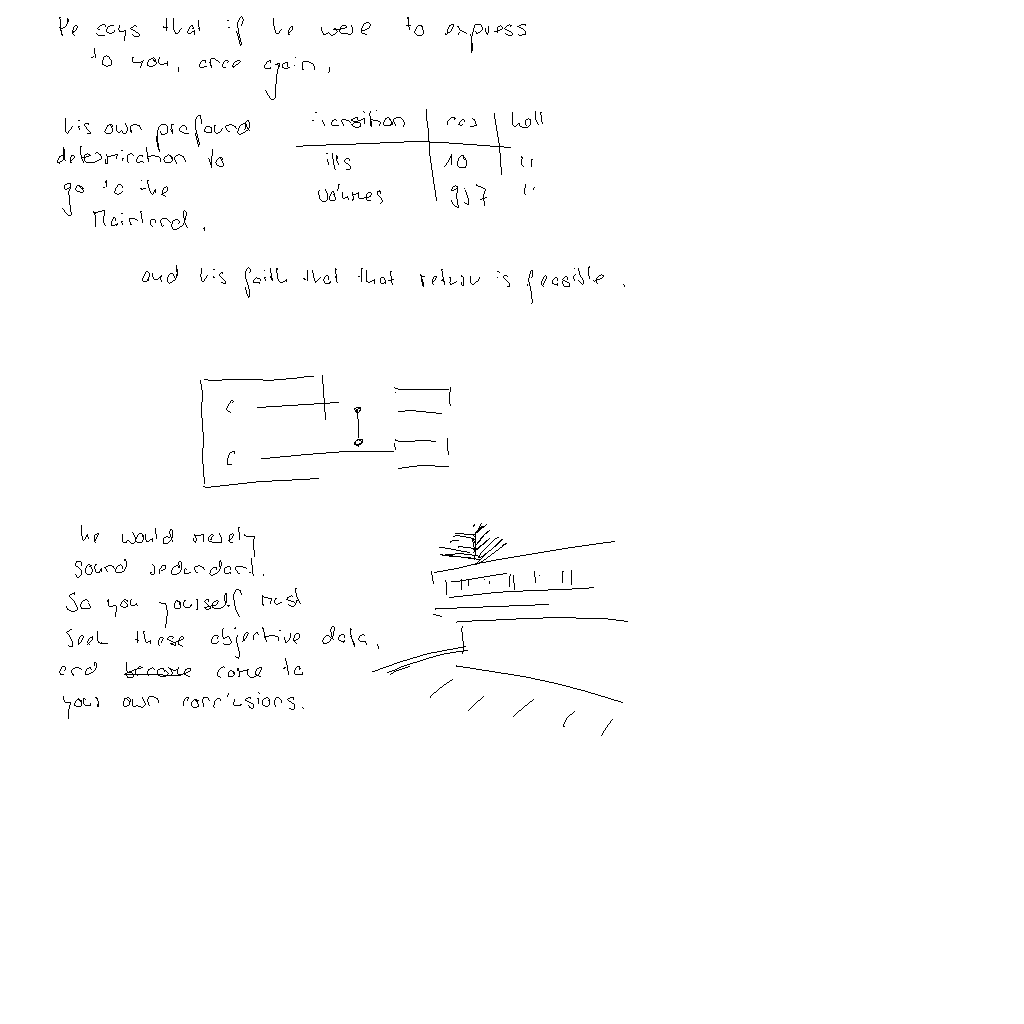 He says that if he were to express
to you, once again,
his own profound
determination to
go to the
Mainland,
transition ras hall
ills 10 "
volumes 957 "
and his faith that that return is feasible,
C
C
he would merely
sound redundant.
So you yourself must
seek these objective data,
and become come to
your own conclusions.